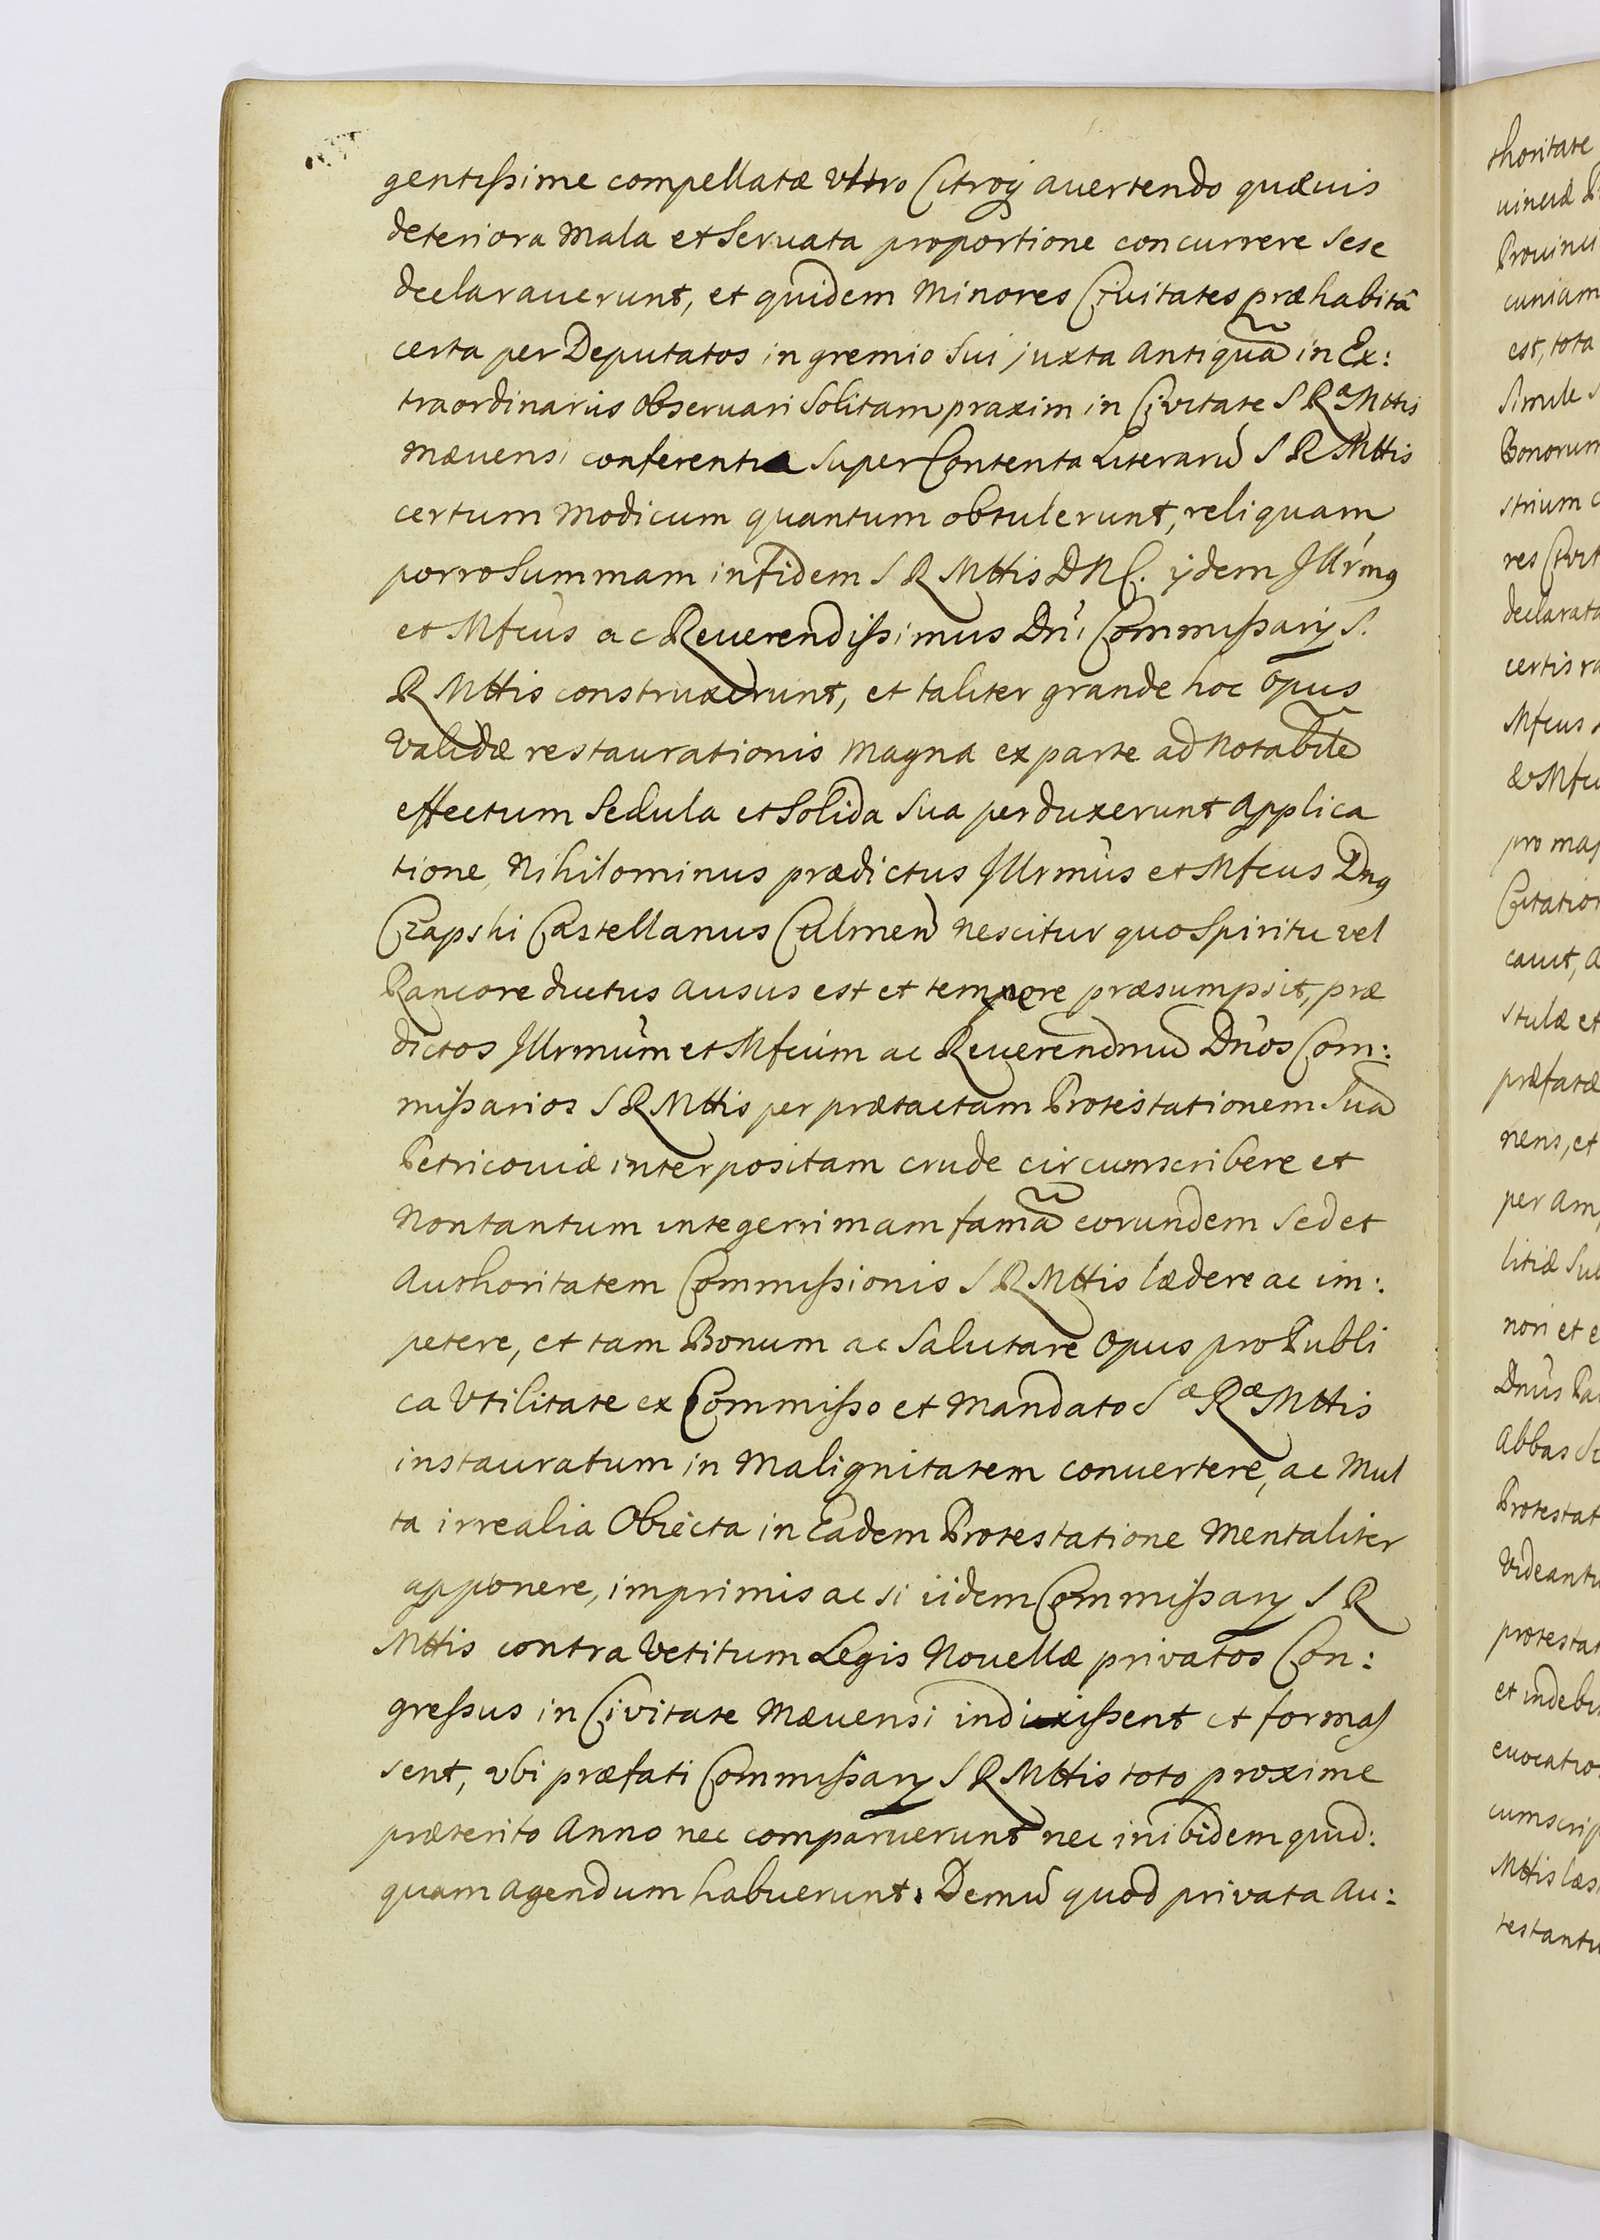 gentissime compellatæ vltro Citroq avertendo quævis
deteriora mala et servata proportione concurrere sese
declaraverunt, et quidem minores Civitates præhabitâ
certa per Deputatos in gremio sui juxta antiquã in Ex:
traordinariis observari solitam praxim in Civitate S Ra Mttis
Mævensi conferentia super Contenta Literarũ S R Mttis
certum modicum quantum obtulerunt, reliquam
porro summam in fidem S R Mttis D N C. ÿdem Jllrmq
et Mfcus ac Reverendissimus Dni Commissarÿ S.
R Mttis construxerunt, et taliter grande hoc opus
validæ restaurationis magna ex parte ad notabilẽ
effectum sedula et solida sua perduxerunt applica
tione, Nihilominus prædictus Jllrmus et Mfcus Dnq
Czapski Castellanus Culmeñ nescitur quo spiritu vel
Rancore ductus ausus est et tempore præsumpsit, præ
dictos Jllrmum et Mfcum ac Reverendmũ Dnos Com:
missarios S R Mttis per prætactam Protestationem suã
Petricoviæ interpositam crude circumscribere et
non tantum integerrimam famã eorundem sed et
Authoritatem Commissionis S R Mttis lædere ac im:
petere, et tam Bonum ac salutare opus pro Publi
ca vtilitate ex Commisso et mandato Sæ Ræ Mttis
instauratum in malignitatem convertere, ac mul
ta irrealia obiecta in Eadem Protestatione mentaliter
apponere, imprimis ac si iidem Commissarÿ S R
Mttis contra vetitum Legis Novellæ privatos Con:
gressus in Civitate Mævensi indixissent et formas
sent, vbi præfati Commissarÿ S R Mttis toto proxime
præterito Anno nec comparuerunt nec inibidem quid:
quam agendum habuerunt. Demũ quod privata Au:
thoritate
Provinci
cuniam
est, tota
Simile
Bonorum
strium
res Civit
declarata
certis ra
Mfcus
pro mag
Citation
cavit, a
stulæ et
præfatæ
nens, et
per am
litiæ sub
nori et e
Dnus Pa
Abbas
Protestat
videantu
protestat
et indebi
evocatio
cumscrip
Mttis læs
testantu